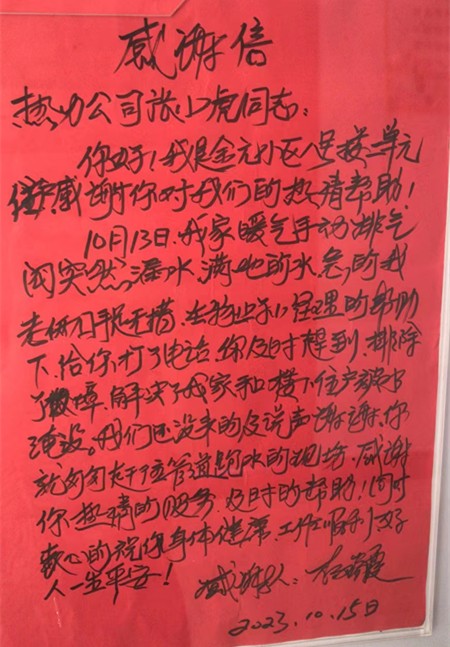 感谢信
热力公司张小虎同志:
你好!我是金元小区八号楼三单元
住户感谢你对我们的热情帮助!
10月13日.我家暖气手动排气
阀突然漏水.满地的水.急的我
老伴手捉无措.在物业小经理的帮助
下.给你打了电话.你及时赶到.排除
了故障.解决了我家和楼下住户被
淹没。我们还没来的及说声谢谢.你
就匆匆赶下位管道跑水的现场.感谢
你热情的服务.及时的帮助!同时
衷心的祝你身体健康.工作顺利.好
人一生平安!
感谢人:
2023.10.15日